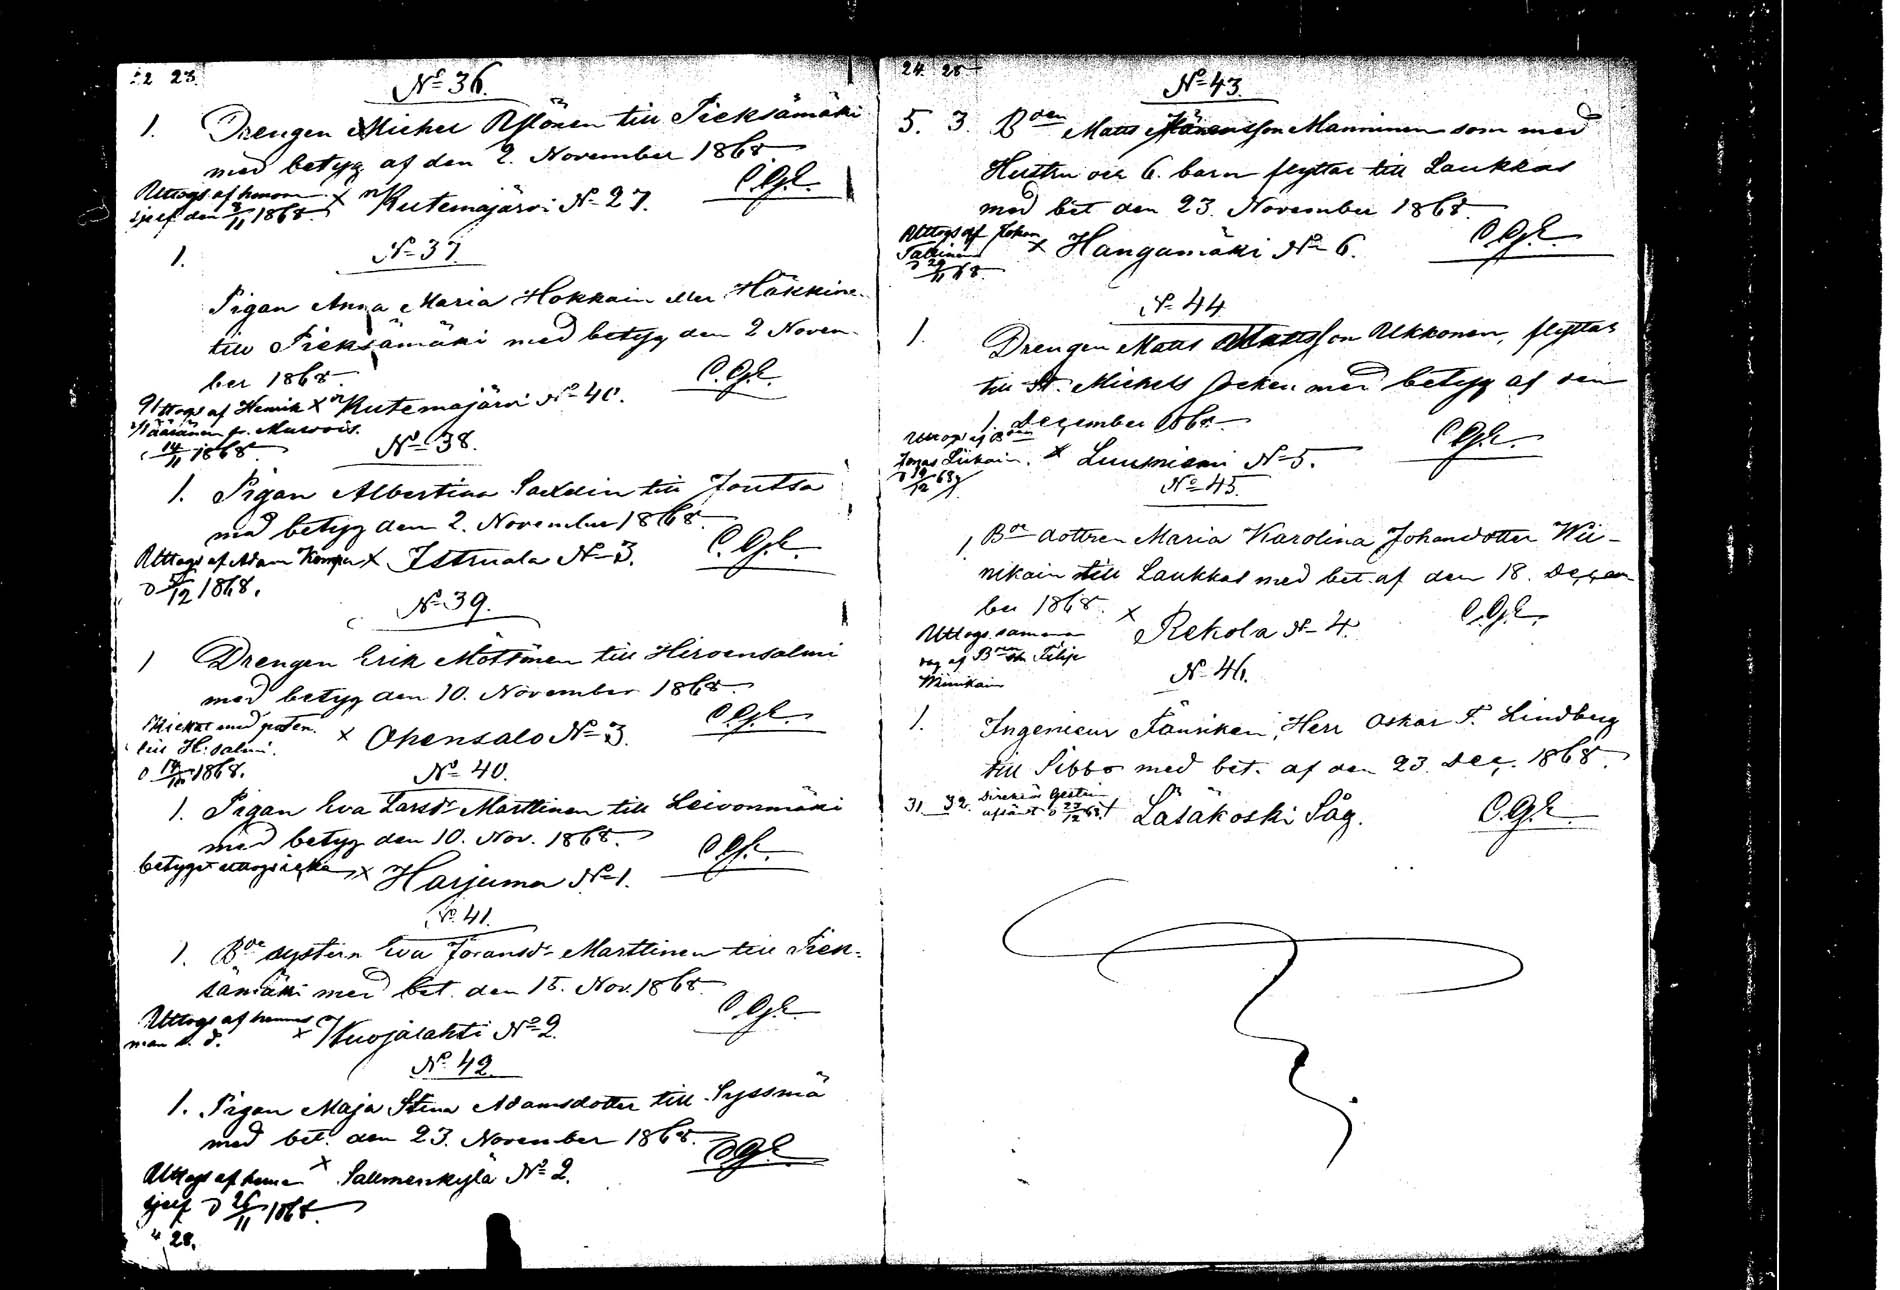 22 23.
Nº 36.
1. Drengen Michel till Pieksämäki
med betyg af den 2. November 1868.
Uttogs af honom x Kutemajärvi Nº 27. C.G.E.
sjelf den 3/11 1868.
1. Nº 37.
Pigan Anna Maria Hokkain eller Häkkine-
till Pieksämäki med betyg den 2 Novem-
ber 1868. C.G.E.
Uttogs af Henrik x Kutemajärvi Nº 40.
Wääränen fr.
14/11 1868. Nº 38.
1. Pigan Albertina till Joutsa
med betyg den 2. November 1868.
Uttogs af Adam x Istruala Nº 3. C.G.E.
d /12 1868.
Nº 39.
1 Drengen Erik Möttönen till Hirvensalmi
med betyg den 10. November 1868.
Skickat med posten x Ohensalo Nº 3. C.G.E.
till H:salmi.
d 1868. Nº 40.
1. Pigan Eva Larsdr Marttinen till Leivonmäki
med betyg den 10. Nov. 1868.
betyget uttogs icke x Harjuma Nº 1. C.G.E.
Nº 41.
1. Bde systern Eva Göransdr Marttinen till Piek-
sämäki med bet. den 15. Nov. 1868.
Uttogs af hennes x Kuojalahti Nº 2. C.G.E.
man s. d.
Nº 42.
1. Pigan Maja Stina Adamsdotter till Syssmä
med bet. den 23. November 1868.
Uttogs af henne x Salmenkylä Nº 2. C.G.E.
sjelf d 26/11 1868.
28.
24. 25
Nº 43.
5. 3. Bden Matts Manninen som med
Hustru och 6. barn flyttar till Laukkas
med bet den 23. November 1868.
Uttogs af Johan x Hangamäki Nº 6. C.G.E.
d 29/11 68.
Nº 44.
1. Drengen Matts Mattsson Ukkonen, flyttar
till St. Michels socken med betyg af den
1. December 1868.
Uttogs af Bden x Luusniemi Nº 5. C.G.E.
Jonas Liikain.
d 19/12 68
Nº 45.
1. Bde dottren Maria Karolina Johansdotter Wii-
nikain till Laukkas med bet. af den 18. Decem-
ber 1868. x Rekola Nº 4. C.G.E.
Uttogs samma
dag af Bden Filip
Wiinikain Nº 46.
1. Ingenieur Fänriken, Herr Oskar F. Lindberg
till Sibbo med bet. af den 23. Dec. 1868.
31 32. afsändt d 23/12 68. x Läsäkoski Såg. C.G.E.